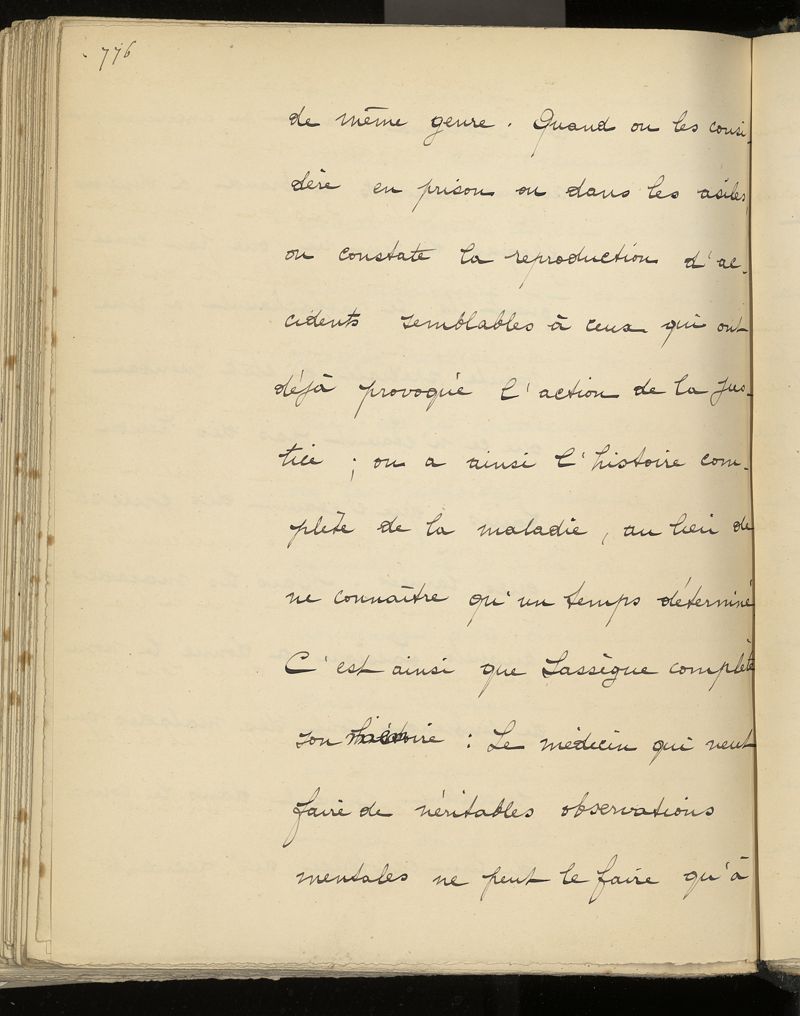 776
de même genre. Quand on les consi-
dère en prison ou dans les asiles,
on constate la reproduction d'ac-
cidents semblables à ceux qui ont
déjà provoqué l'action de la jus-
tice ; on a ainsi l'histoire com-
plète de la maladie, au lieu de
ne connaître qu'un temps déterminé
C'est ainsi que Lassègue complète
son histoire : Le médecin qui veut
faire de véritables observations
mentales ne peut le faire qu'à